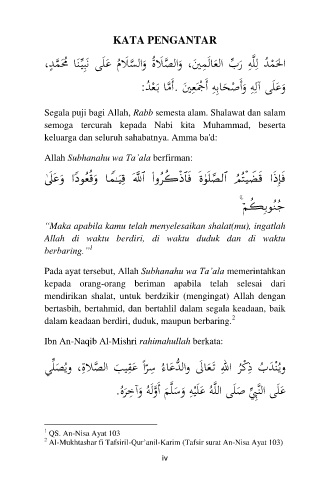 KATA PENGANTAR
الحَمْدُ لِلَّهِ رَبِّ العَالَمِينَ، وَالصَّلَاةُ وَالسَّلَامُ عَلَى نَبِيِّنَا مُحَمَّدٍ،
وَعَلَى آلِهِ وَأَصْحَابِهِ أَجْمَعِينَ .أَمَّا بَعْدُ:
Segala puji bagi Allah, Rabb semesta alam. Shalawat dan salam
semoga tercurah kepada Nabi kita Muhammad, beserta
keluarga dan seluruh sahabatnya. Amma ba'd:
Allah Subhanahu wa Ta'ala berfirman:
فَإِذَا قَضَيْتُمُ ٱلصَّلَوٰةَ فَٱذْكُرُوا۟ ٱللَّهَ قِيَـٰمًا وَقُعُودًا وَعَلَىٰ
جُنُوبِكُمْ ۚ
"Maka apabila kamu telah menyelesaikan shalat(mu), ingatlah
Allah di waktu berdiri, di waktu duduk dan di waktu
berbaring."1
Pada ayat tersebut, Allah Subhanahu wa Ta'ala memerintahkan
kepada orang-orang beriman apabila telah selesai dari
mendirikan shalat, untuk berdzikir (mengingat) Allah dengan
bertasbih, bertahmid, dan bertahlil dalam segala keadaan, baik
dalam keadaan berdiri, duduk, maupun berbaring.2
Ibn An-Naqib Al-Mishri rahimahullah berkata:
ويُنْدَبُ ذِكْرُ اللهِ تَعَالَى والدُّعَاءُ سِرّاً عَقِيبَ الصَّلاةِ، ويُصَلِّي
عَلَى النَّبِيِّ صَلَى اللَّهُ عَلَيْهِ وَسَلَّمَ أَوَّلَهُ وَآخِرَهُ.
1 QS. An-Nisa Ayat 103
2 Al-Mukhtashar fi Tafsiril-Qur'anil-Karim (Tafsir surat An-Nisa Ayat 103)
iv